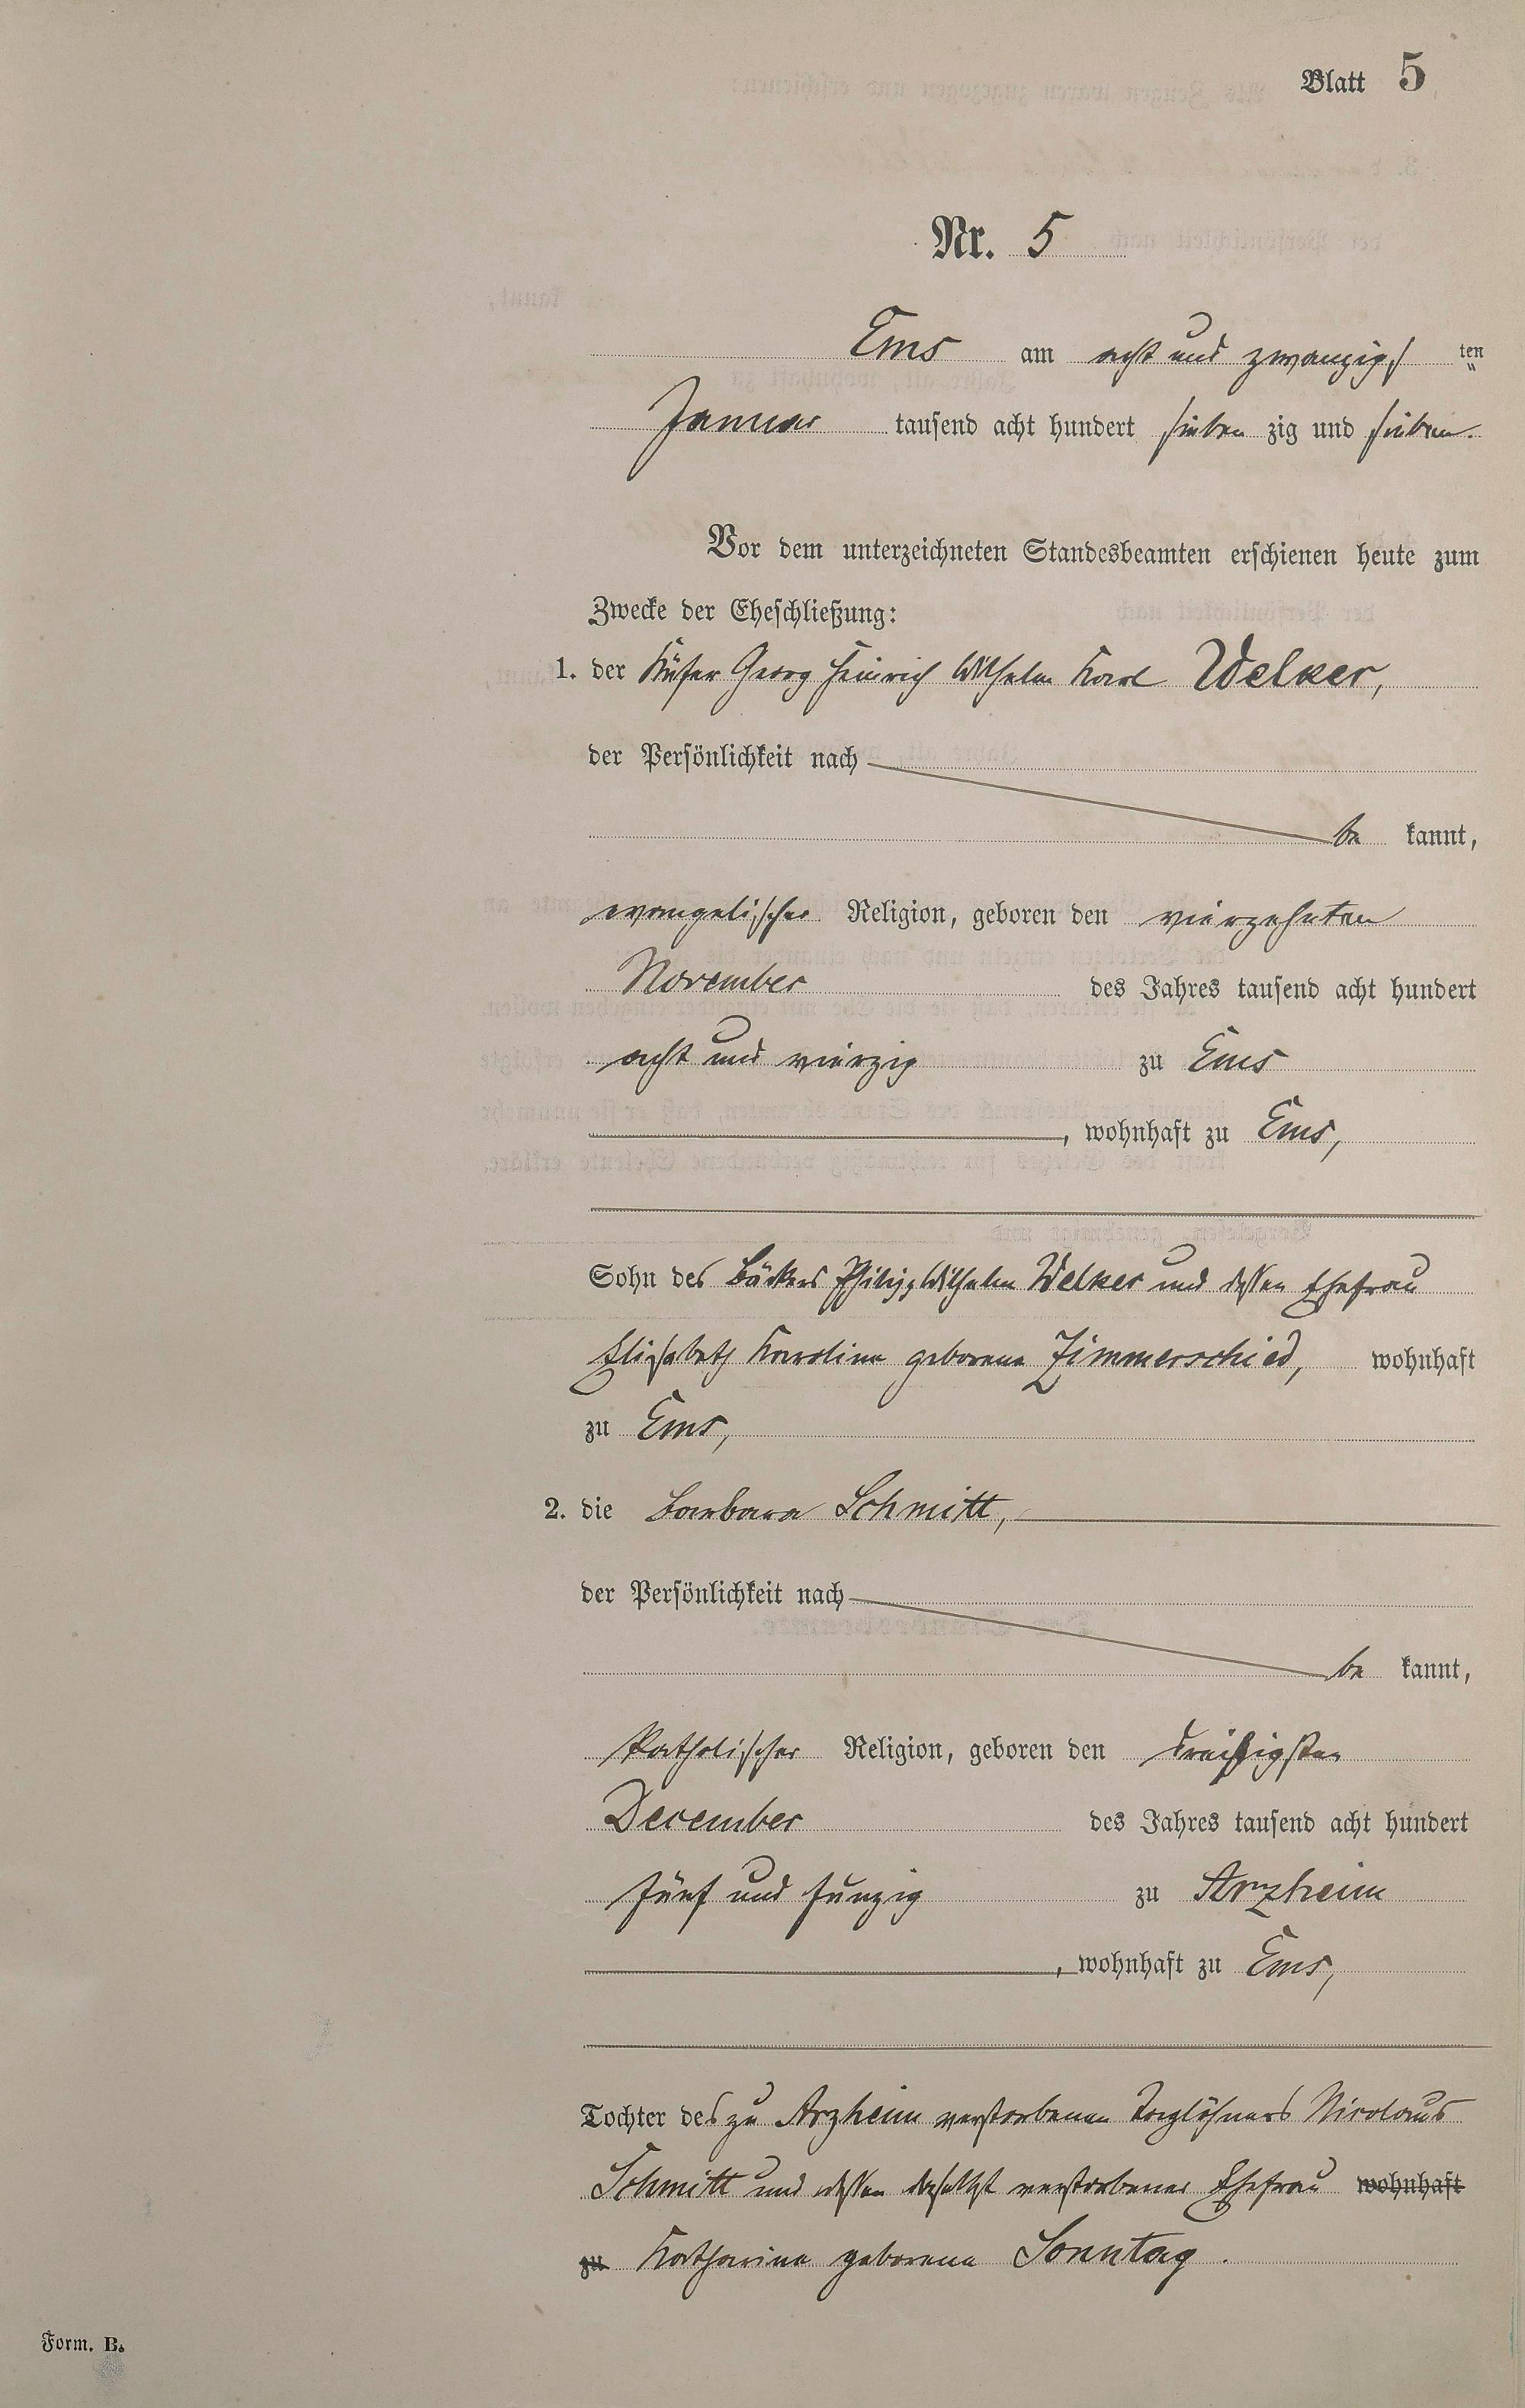 Blatt 5
Nr. 5
Ems am acht und zwanzigsten
Januar tausend acht hundert sieben zig und sieben.
Vor dem unterzeichneten Standesbeamten erschienen heute zum
Zwecke der Eheschließung:
1. der Küfer Georg Heinrich Wilhelm Karl Welker,
der Persönlichkeit nach
be kannt,
evangelischer Religion, geboren den vierzehnten
November des Jahres tausend acht hundert
acht und vierzig zu Ems
, wohnhaft zu Ems,
Sohn des Bäckers Philipp Wilhelm Welker und dessen Ehefrau
Elisabeth Karoline geborene Zimmerschied, wohnhaft
zu Ems,
2. die Barbara Schmitt,
der Persönlichkeit nach
be kannt,
katholischer Religion, geboren den dreißigsten
December des Jahres tausend acht hundert
fünf und funzig zu Arzheim
, wohnhaft zu Ems,
Tochter des zu Arzheim verstorbenen Taglöhners Nicolaus
Schmitt und dessen daselbst verstorbener Ehefrau wohnhaft
zu Katharina geborene Sonntag.
Form. B.